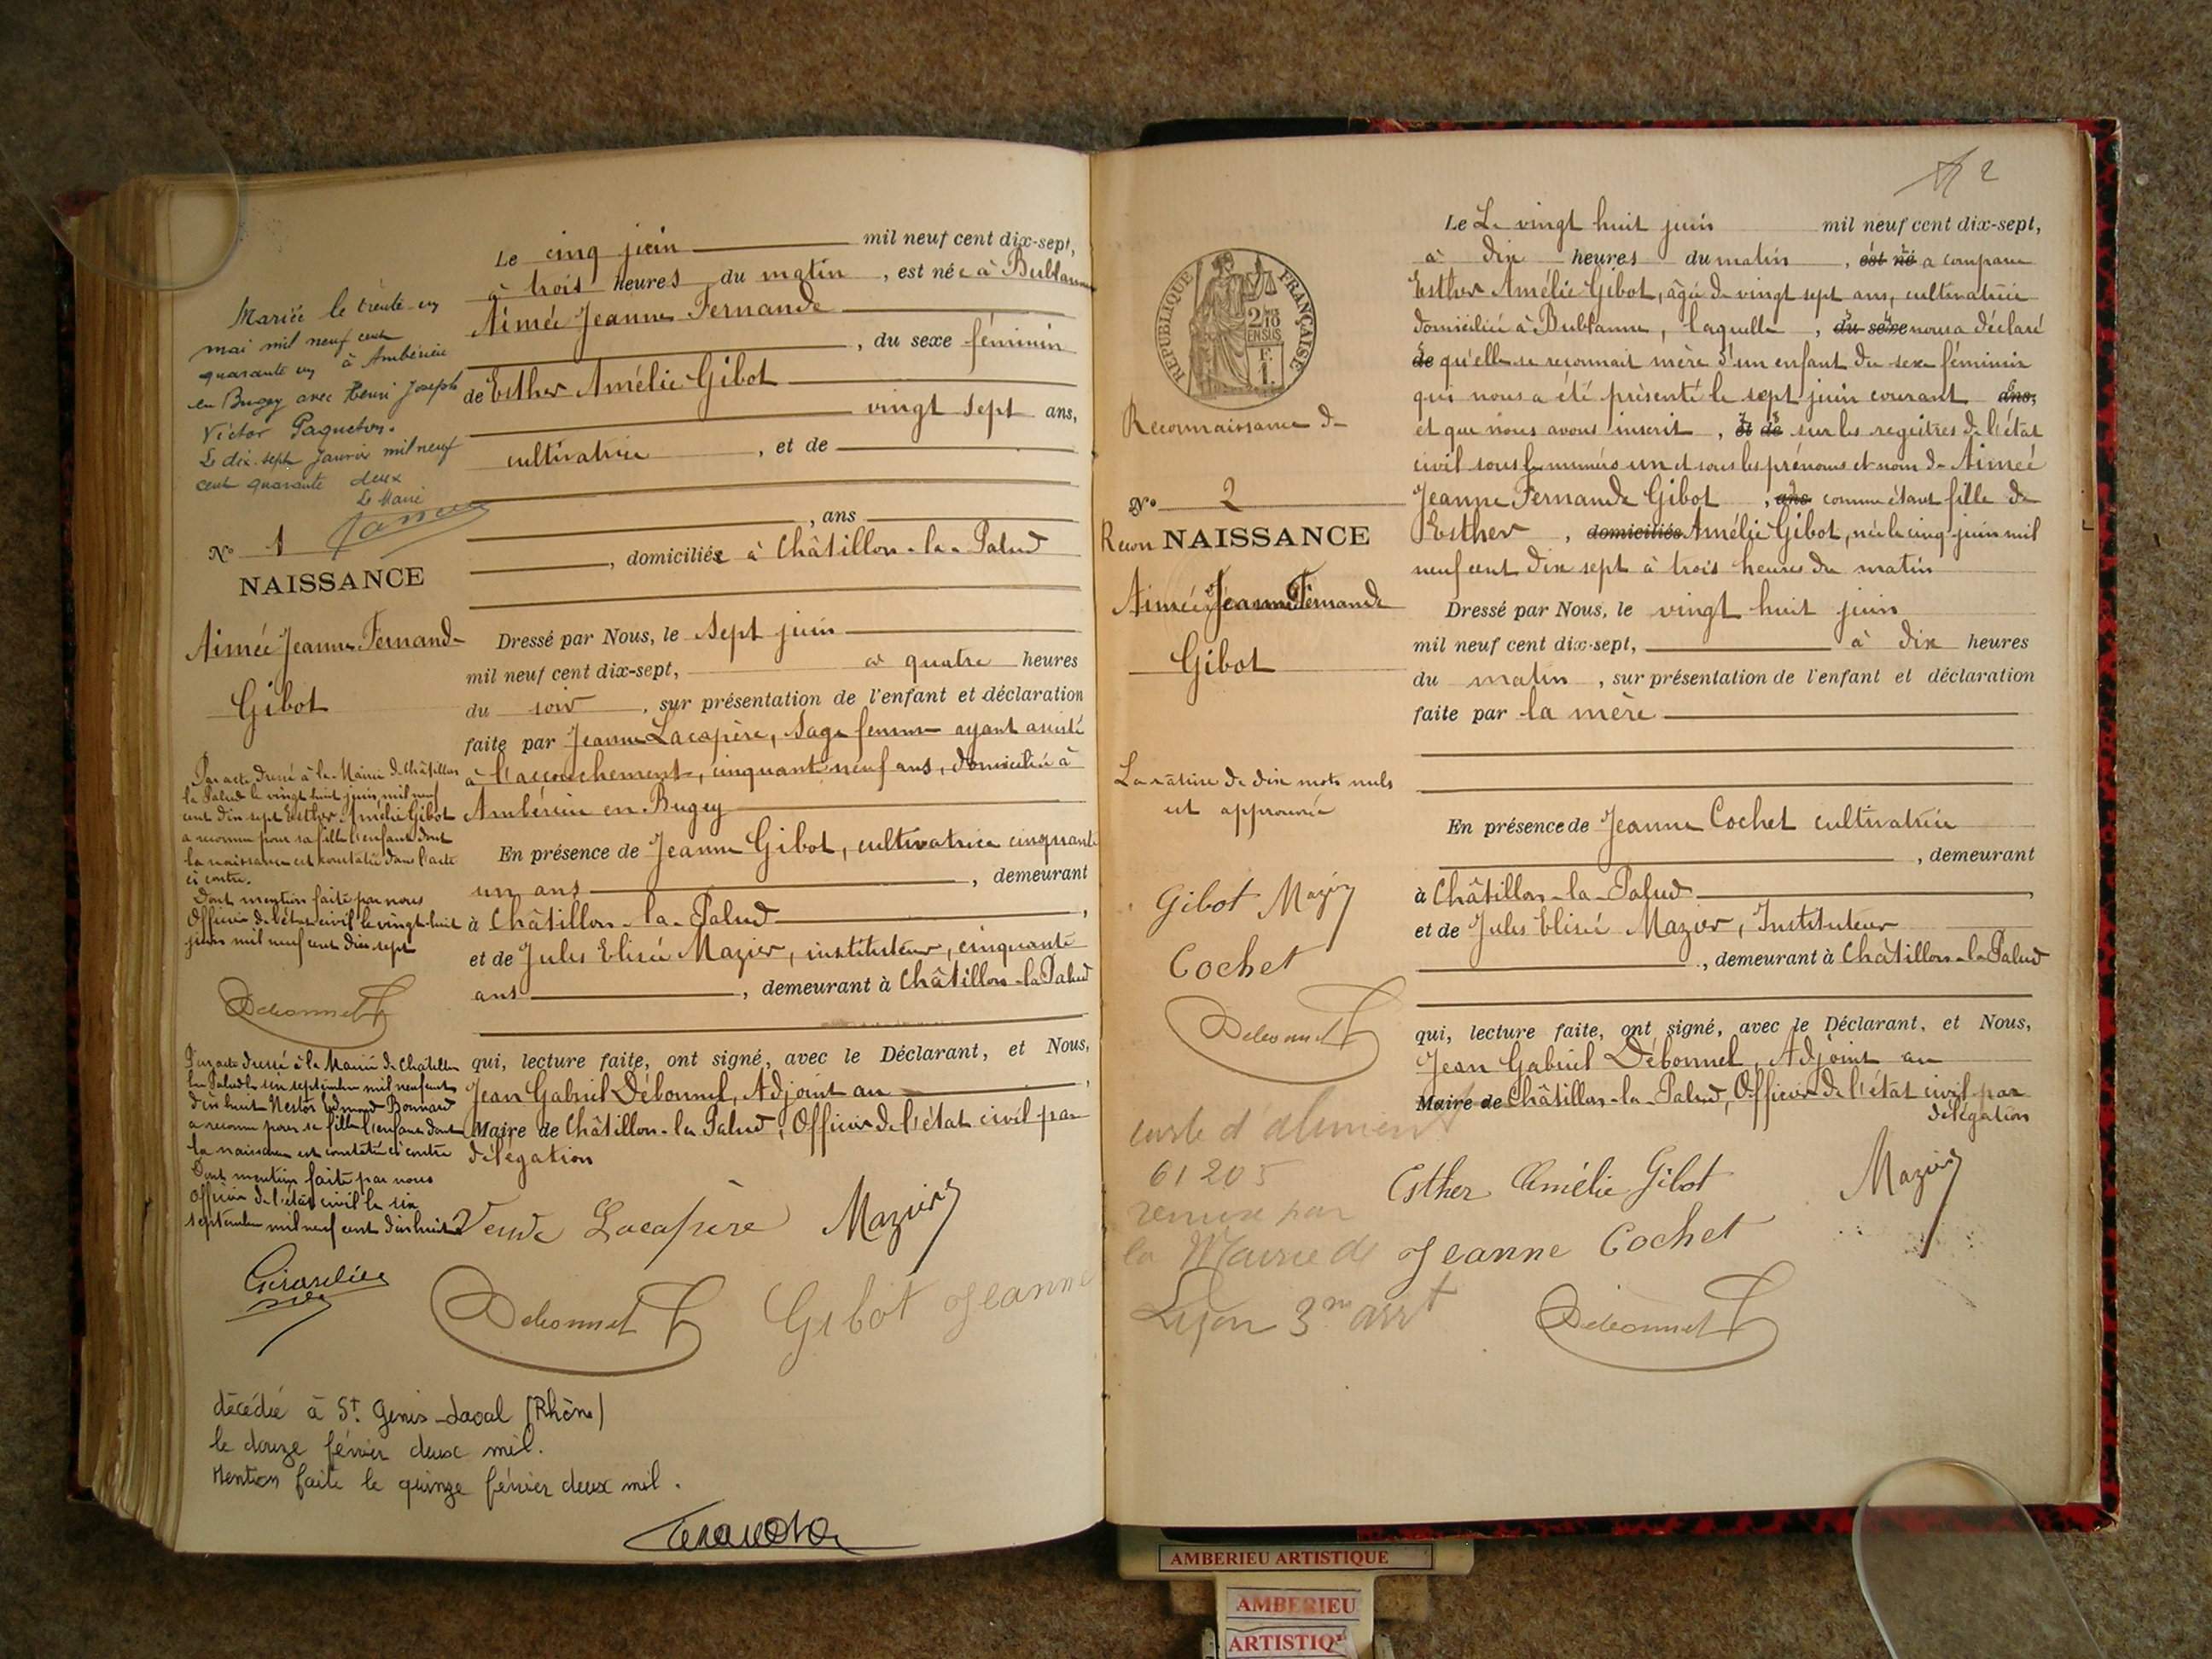 Mariée le trente un
mai mil neuf cent
quarante un à Ambérieu
en Bugey avec Henri Joseph
Victor Paqueton.
Le dix-sept Janvier mil neuf
cent quarante deux
Le Maire
N° 1
NAISSANCE
Aimée Jeanne Fernande
Gibot
Par acte dressé à la Mairie de Châtillon
la Palud le vingt huit juin mil neuf
cent dix sept Esther Amélie Gibot
a reconnu pour sa fille l'enfant dont
la naissance est constatée dans l'acte
ci contre.
Dont mention faite par nous
Officier de l'état civil le vingt-huit
juin mil neuf cent dix sept
Débonnel
Par acte dressé à la Mairie de Chatillon
la Palud le six septembre mil neuf cent
dix huit Nestor Edmond Bonnard
a reconnu pour sa fille l'enfant dont
la naissance est constatée ci contre
Dont mention faite par nous
officier de l'état civil le six
septembre mil neuf cent dix huit
Le cinq juin mil neuf cent dix-sept,
à trois heures du matin, est née à Bublanne
Aimée Jeanne Fernande
, du sexe féminin
de Esther Amélie Gibot
vingt sept ans,
cultivatrice, et de
, ans
, domiciliée à Châtillon-la-Palud
Dressé par Nous, le sept juin
mil neuf cent dix-sept, à quatre heures
du soir, sur présentation de l'enfant et déclaration
faite par Jeanne Lacapère, Sage femme ayant assisté
à l'accouchement, cinquante neuf ans, domiciliée à
Ambérieu en Bugey
En présence de Jeanne Gibot, cultivatrice cinquante
un ans, demeurant
à Châtillon-la-Palud,
et de Jules Elisée Mazier, instituteur, cinquante
ans, demeurant à Châtillon-la-Palud
qui, lecture faite, ont signé, avec le Déclarant, et Nous,
Jean Gabriel Débonnel, Adjoint au
Maire de Châtillon-la-Palud, Officier de l'état civil par
délégation
Veuve Lacapère Mazier
Débonnel Gibot Jeanne
décédée à St Genis-Laval (Rhône)
le douze février deux mil.
Mention faite le quinze février deux mil.
2
RÉPUBLIQUE FRANÇAISE
Reconnaissance de
N° 2
Recon NAISSANCE
Aimée Jeanne Fernande
Gibot
La rature de dix mots nuls
est approuvée
Gibot Mazier
Cochet
Débonnel
carte d'aliment
61205
remise par
la Mairie de
Lyon 3me arrt
Le Le vingt huit juin mil neuf cent dix-sept,
à dix heures du matin, est né a comparu
Esther Amélie Gibot, âgée de vingt sept ans, cultivatrice
domiciliée à Bublanne, laquelle, du sexe nous a déclaré
de qu'elle se reconnait mère d'un enfant du sexe féminin
qui nous a été présenté le sept juin courant ans,
et que nous avons inscrit, et de sur les registres de l'état
civil sous le numéro un et sous les prénoms et nom de Aimée
Jeanne Fernande Gibot, ans comme étant fille de
Esther, domiciliés Amélie Gibot, née le cinq juin mil
neuf cent dix sept à trois heures du matin
Dressé par Nous, le vingt huit juin
mil neuf cent dix-sept, à dix heures
du matin, sur présentation de l'enfant et déclaration
faite par la mère
En présence de Jeanne Cochet cultivatrice
, demeurant
à Châtillon-la-Palud
et de Jules Elisée Mazier, Instituteur
, demeurant à Châtillon-la-Palud
qui, lecture faite, ont signé, avec le Déclarant, et Nous,
Jean Gabriel Débonnel, Adjoint au
Maire de Châtillon-la-Palud, Officier de l'état civil par
délégation
Esther Amélie Gibot Mazier
Jeanne Cochet
Débonnel
AMBERIEU ARTISTIQUE
AMBERIEU
ARTISTIQ